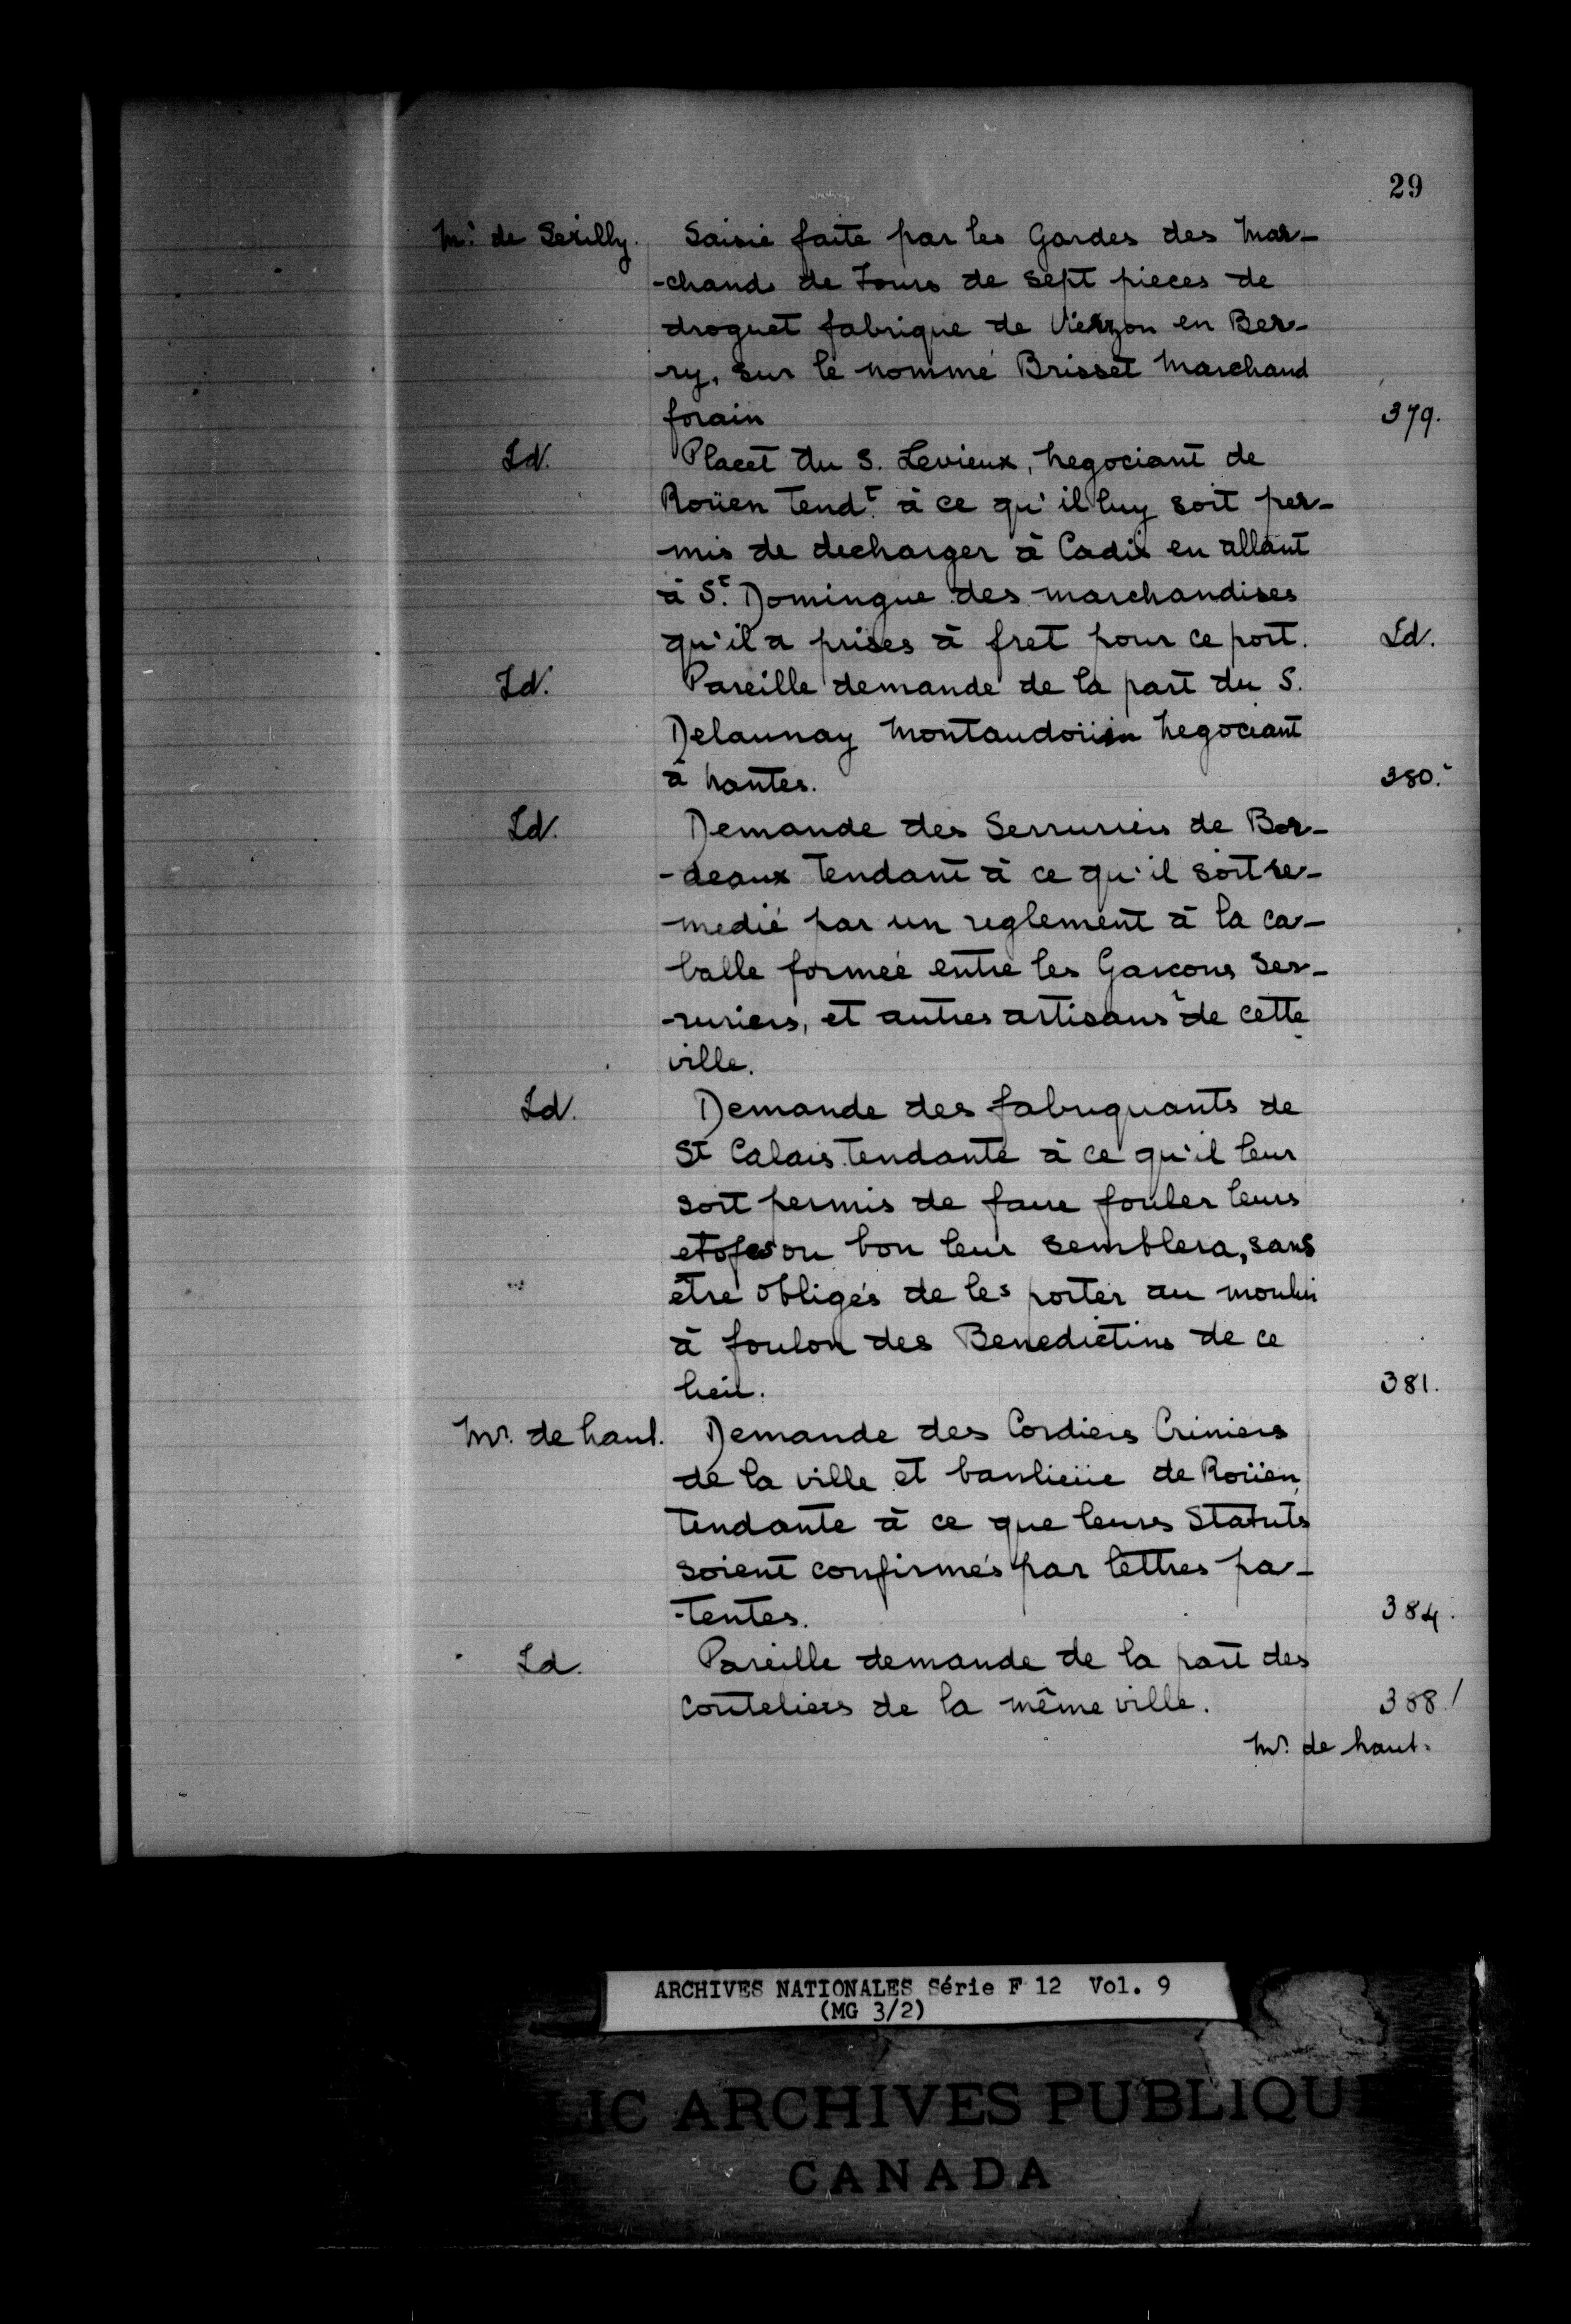 29
Mr. de Serilly. Saisie faite par les Gardes des Mar-
-chands de Tours de sept pieces de
droguet fabrique de Vierzon en Ber-
ry, sur le nommé Brisset Marchand
forain 379.
Id. Placet du S. Levieux, Negociant de
Roüen tendt. à ce qu'il luy soit per-
mis de decharger à Cadix en allant
à St. Domingue des marchandises
qu'il a prises à fret pour ce port. Id.
Id. Pareille demande de la part du S.
Delaunay Montaudoüin Negociant
à Nantes. 380.
Id. Demande des Serruriers de Bor-
-deaux tendant à ce qu'il soit re-
medié par un reglement à la ca-
balle formée entre les Garcons Ser-
-ruriers, et autres artisans de cette
ville.
Id. Demande des fabriquants de
St Calais tendante à ce qu'il leur
soit permis de faire fouler leurs
etofes ou bon leur semblera, sans
être obligés de les porter au moulin
à foulon des Benedictins de ce
lieu. 381.
Mr. de haut. Demande des Cordiers Criniers
de la ville et banlieüe de Roüen,
tendante à ce que leurs Statuts
soient confirmés par lettres pa-
-tentes. 384.
Id. Pareille demande de la part des
Couteliers de la même ville. 388.
Mr. de haut.
ARCHIVES NATIONALES Série F 12 Vol. 9
(MG 3/2)
LIC ARCHIVES PUBLIQU
CANADA